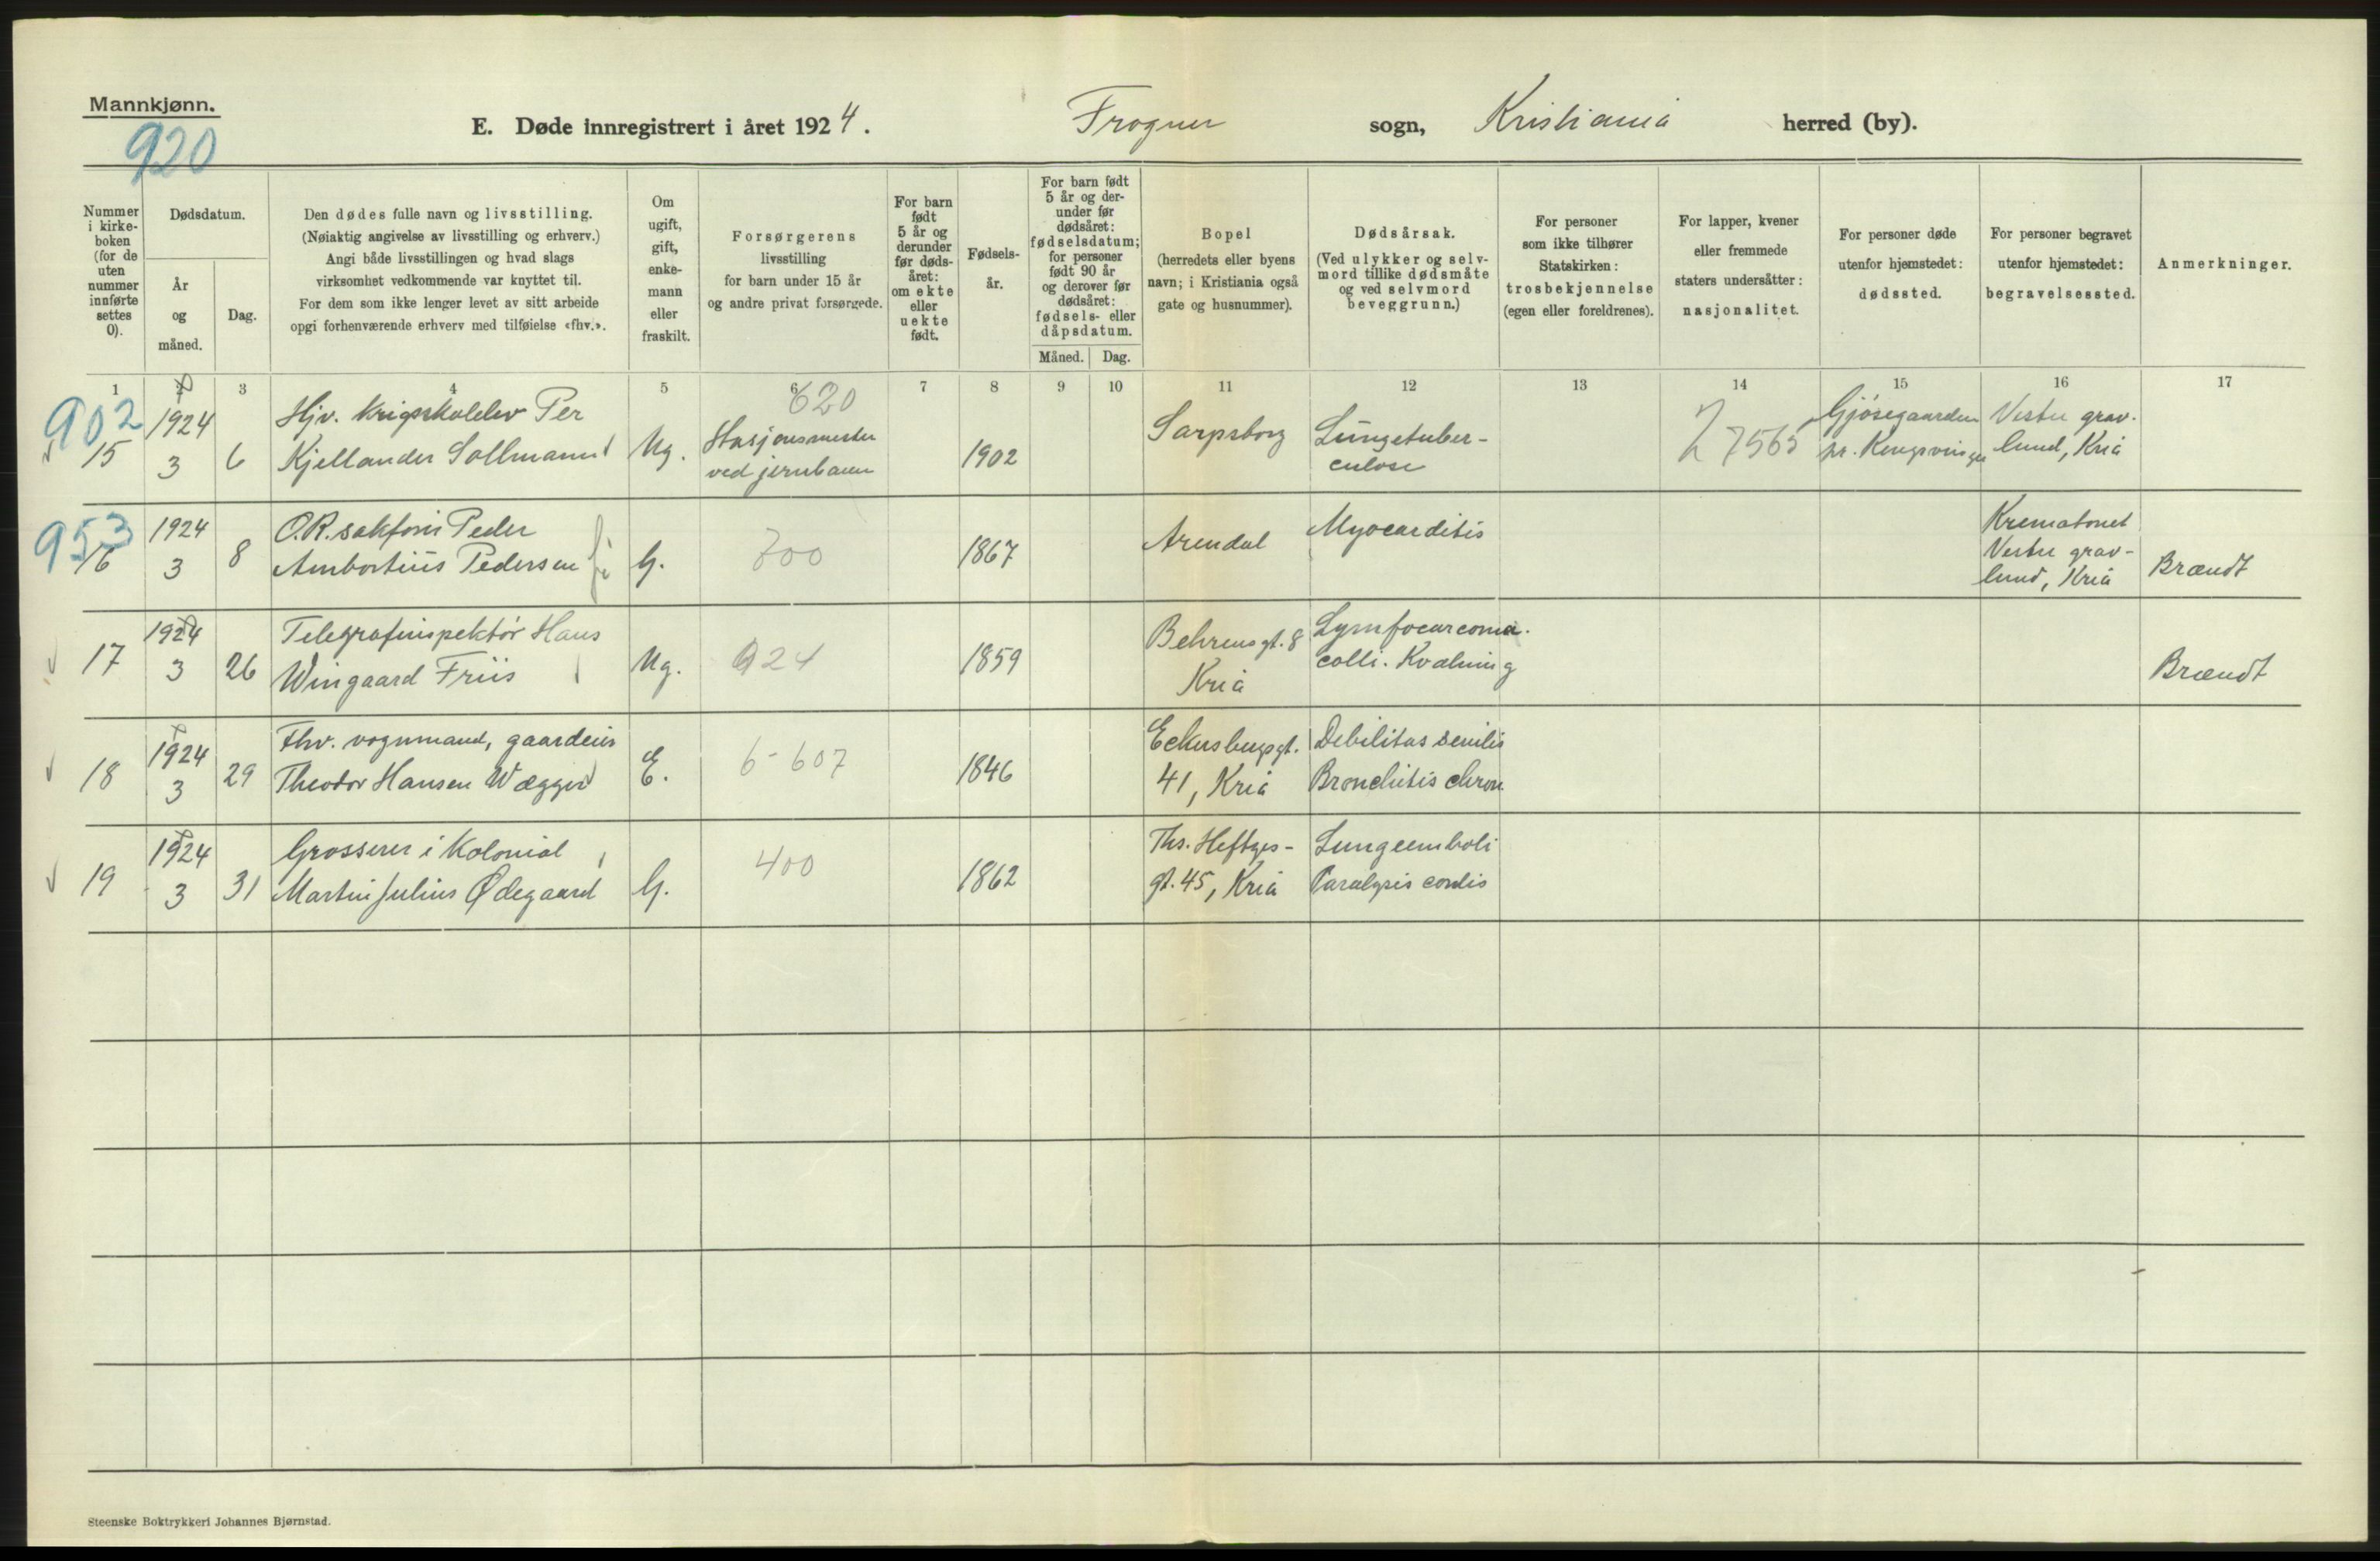 Mannkjønn.
920
E. Døde innregistrert i året 1924. Frogner sogn, Kristiania herred (by).
Nummer i kirkeboken (for de uten nummer innførte settes 0).
Dødsdatum.
År og måned.
Dag.
Den dødes fulle navn og livsstilling.
(Nøiaktig angivelse av livsstilling og erhverv.)
Angi både livsstillingen og hvad slags
virksomhet vedkommende var knyttet til.
For dem som ikke lenger levet av sitt arbeide
opgi forhenværende erhverv med tilføielse «fhv.».
Om ugift, gift, enkemann eller fraskilt.
Forsørgerens
livsstilling
for barn under 15 år
og andre privat forsørgede.
For barn født 5 år og derunder før dødsåret: om ekte eller uekte født.
Fødselsår.
For barn født 5 år og derunder før dødsåret: fødselsdatum; for personer født 90 år og derover før dødsåret: fødsels- eller dåpsdatum.
Måned. Dag.
Bopel
(herredets eller byens
navn; i Kristiania også
gate og husnummer).
Dødsårsak.
(Ved ulykker og selvmord tillike dødsmåte
og ved selvmord
beveggrunn.)
For personer
som ikke tilhører
Statskirken:
trosbekjennelse
(egen eller foreldrenes).
For lapper, kvener
eller fremmede
staters undersåtter:
nasjonalitet.
For personer døde
utenfor hjemstedet:
dødssted.
For personer begravet
utenfor hjemstedet:
begravelsessted.
Anmerkninger.
1 2 3 4 5 6 7 8 9 10 11 12 13 14 15 16 17
902 1924 Hjv. Krigsskoleelev Per 620 Sarpsborg Lungetuber- 7565 Gjøsegaarden Vestre grav-
15 3 6 Kjellander Sollmann Ug. Stasjonsmester ved jernbanen 1902 culose pr. Kongsvinger lund, Kria
953 1924 O.R.sakfører Peder Myocarditis Krematoriet
16 3 8 Ambortius Pedersen G. 700 1867 Arendal Vestre grav-
lund, Kria Brændt
1924 Telegrafinspektør Hans Behrensgt. 8 Lymfocarcoma
17 3 26 Wingaard Friis Ug. 924 1859 Kria colli. Kvælning Brændt
1924 Fhv. vognmand, gaardeier Eckersbergsgt. Debilitas senilis
18 3 29 Theodor Hansen Wægger E. 6-607 1846 41, Kria Bronchitis chron
1924 Grosserer i Kolonial Ths. Heftyes- Lungeemboli
19 3 31 Martin Julius Ødegaard G. 400 1862 gt. 45, Kria Paralysis cordis
Steenske Boktrykkeri Johannes Bjørnstad.